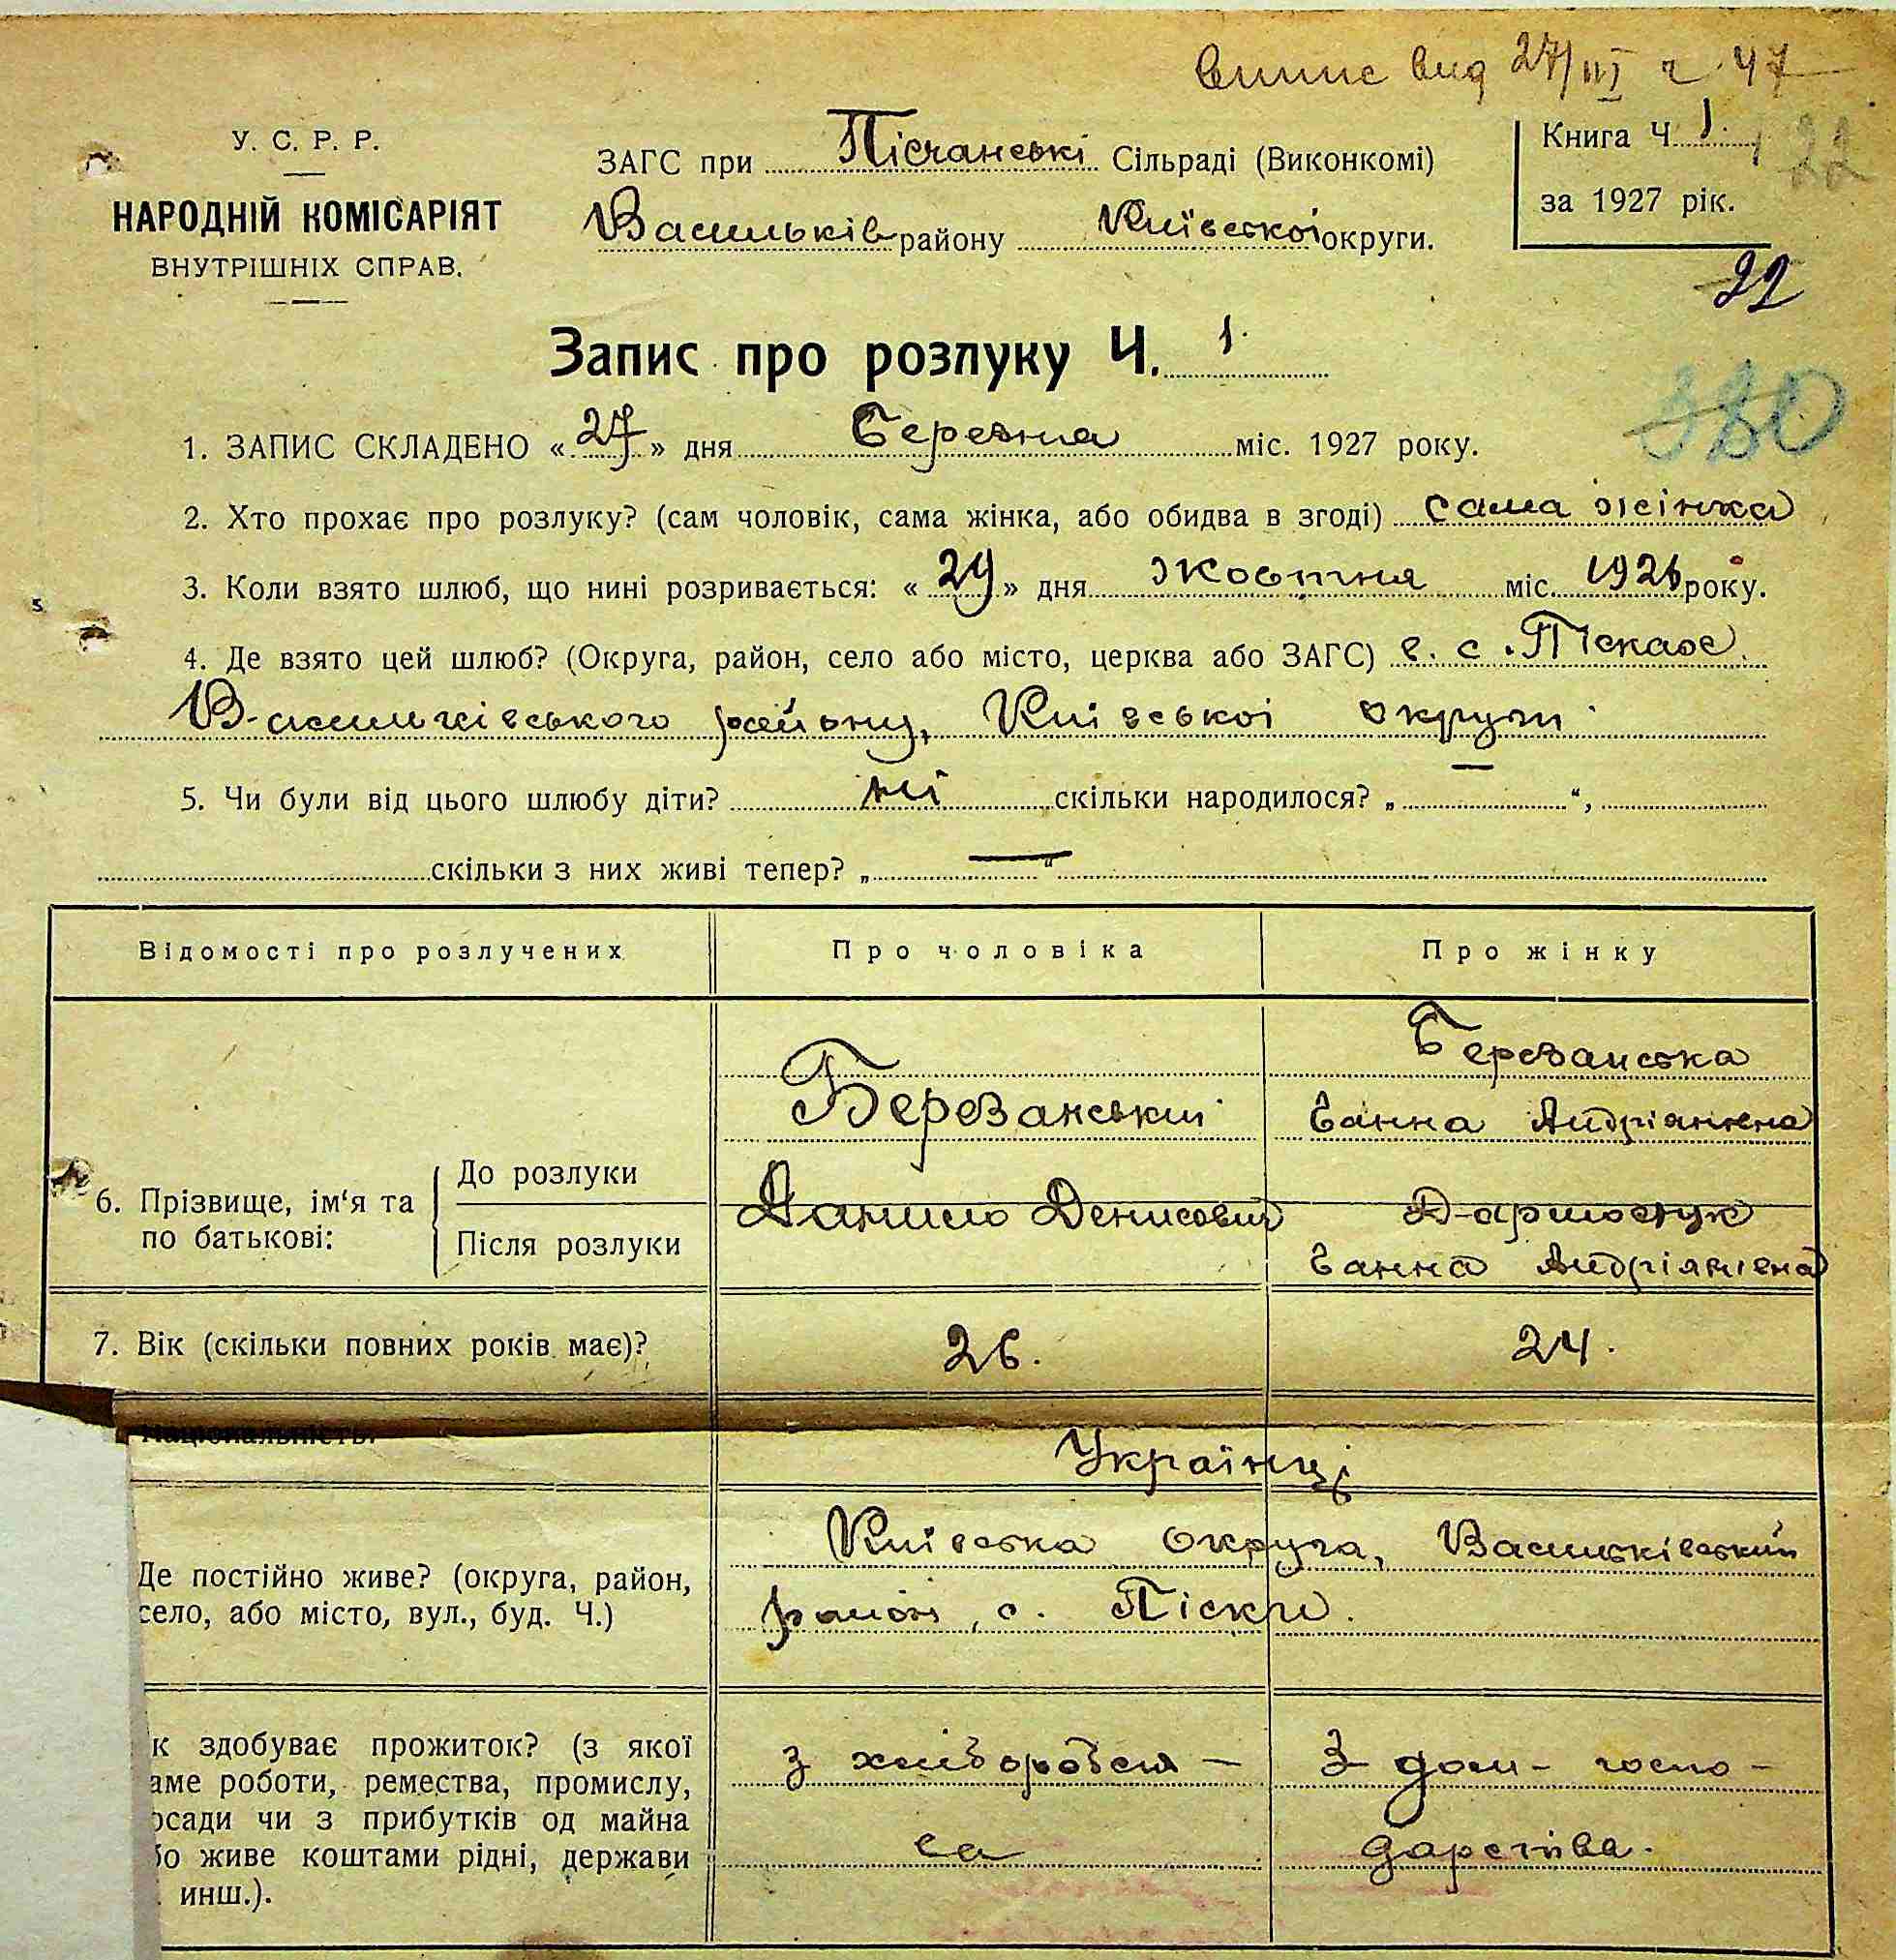 випис вид 27/III ч. 47
У. С. Р. Р.
НАРОДНІЙ КОМІСАРІЯТ
ВНУТРІШНІХ СПРАВ.
ЗАГС при Пісчанські Сільраді (Виконкомі)
Васильків району Київської округи.
Книга Ч. 1.
22
за 1927 рік.
22
Запис про розлуку Ч. 1.
380
1. ЗАПИС СКЛАДЕНО «27» дня Березня міс. 1927 року.
2. Хто прохає про розлуку? (сам чоловік, сама жінка, або обидва в згоді) сама жінка
3. Коли взято шлюб, що нині розривається: «29» дня Жовтня міс. 1926 року.
4. Де взято цей шлюб? (Округа, район, село або місто, церква або ЗАГС) в. с. Пісках
Васильківського району, Київської округи
5. Чи були від цього шлюбу діти? ні скільки народилося? „ — “,
скільки з них живі тепер? „ — “
Відомості про розлучених Про чоловіка Про жінку
6. Прізвище, ім'я та по батькові:
До розлуки
Після розлуки
Березанський
Данило Денисович
Березанська
Ганна Андріянівна
Ганна Андріянівна
7. Вік (скільки повних років має)? 26. 24.
Національність.
Українці
Де постійно живе? (округа, район,
село, або місто, вул., буд. Ч.)
Київська округа, Васильківський
район, с. Піски.
к здобуває прожиток? (з якої
аме роботи, ремества, промислу,
осади чи з прибутків од майна
бо живе коштами рідні, держави
инш.).
З хліборобст-
ва
З дом- госпо-
дарства.